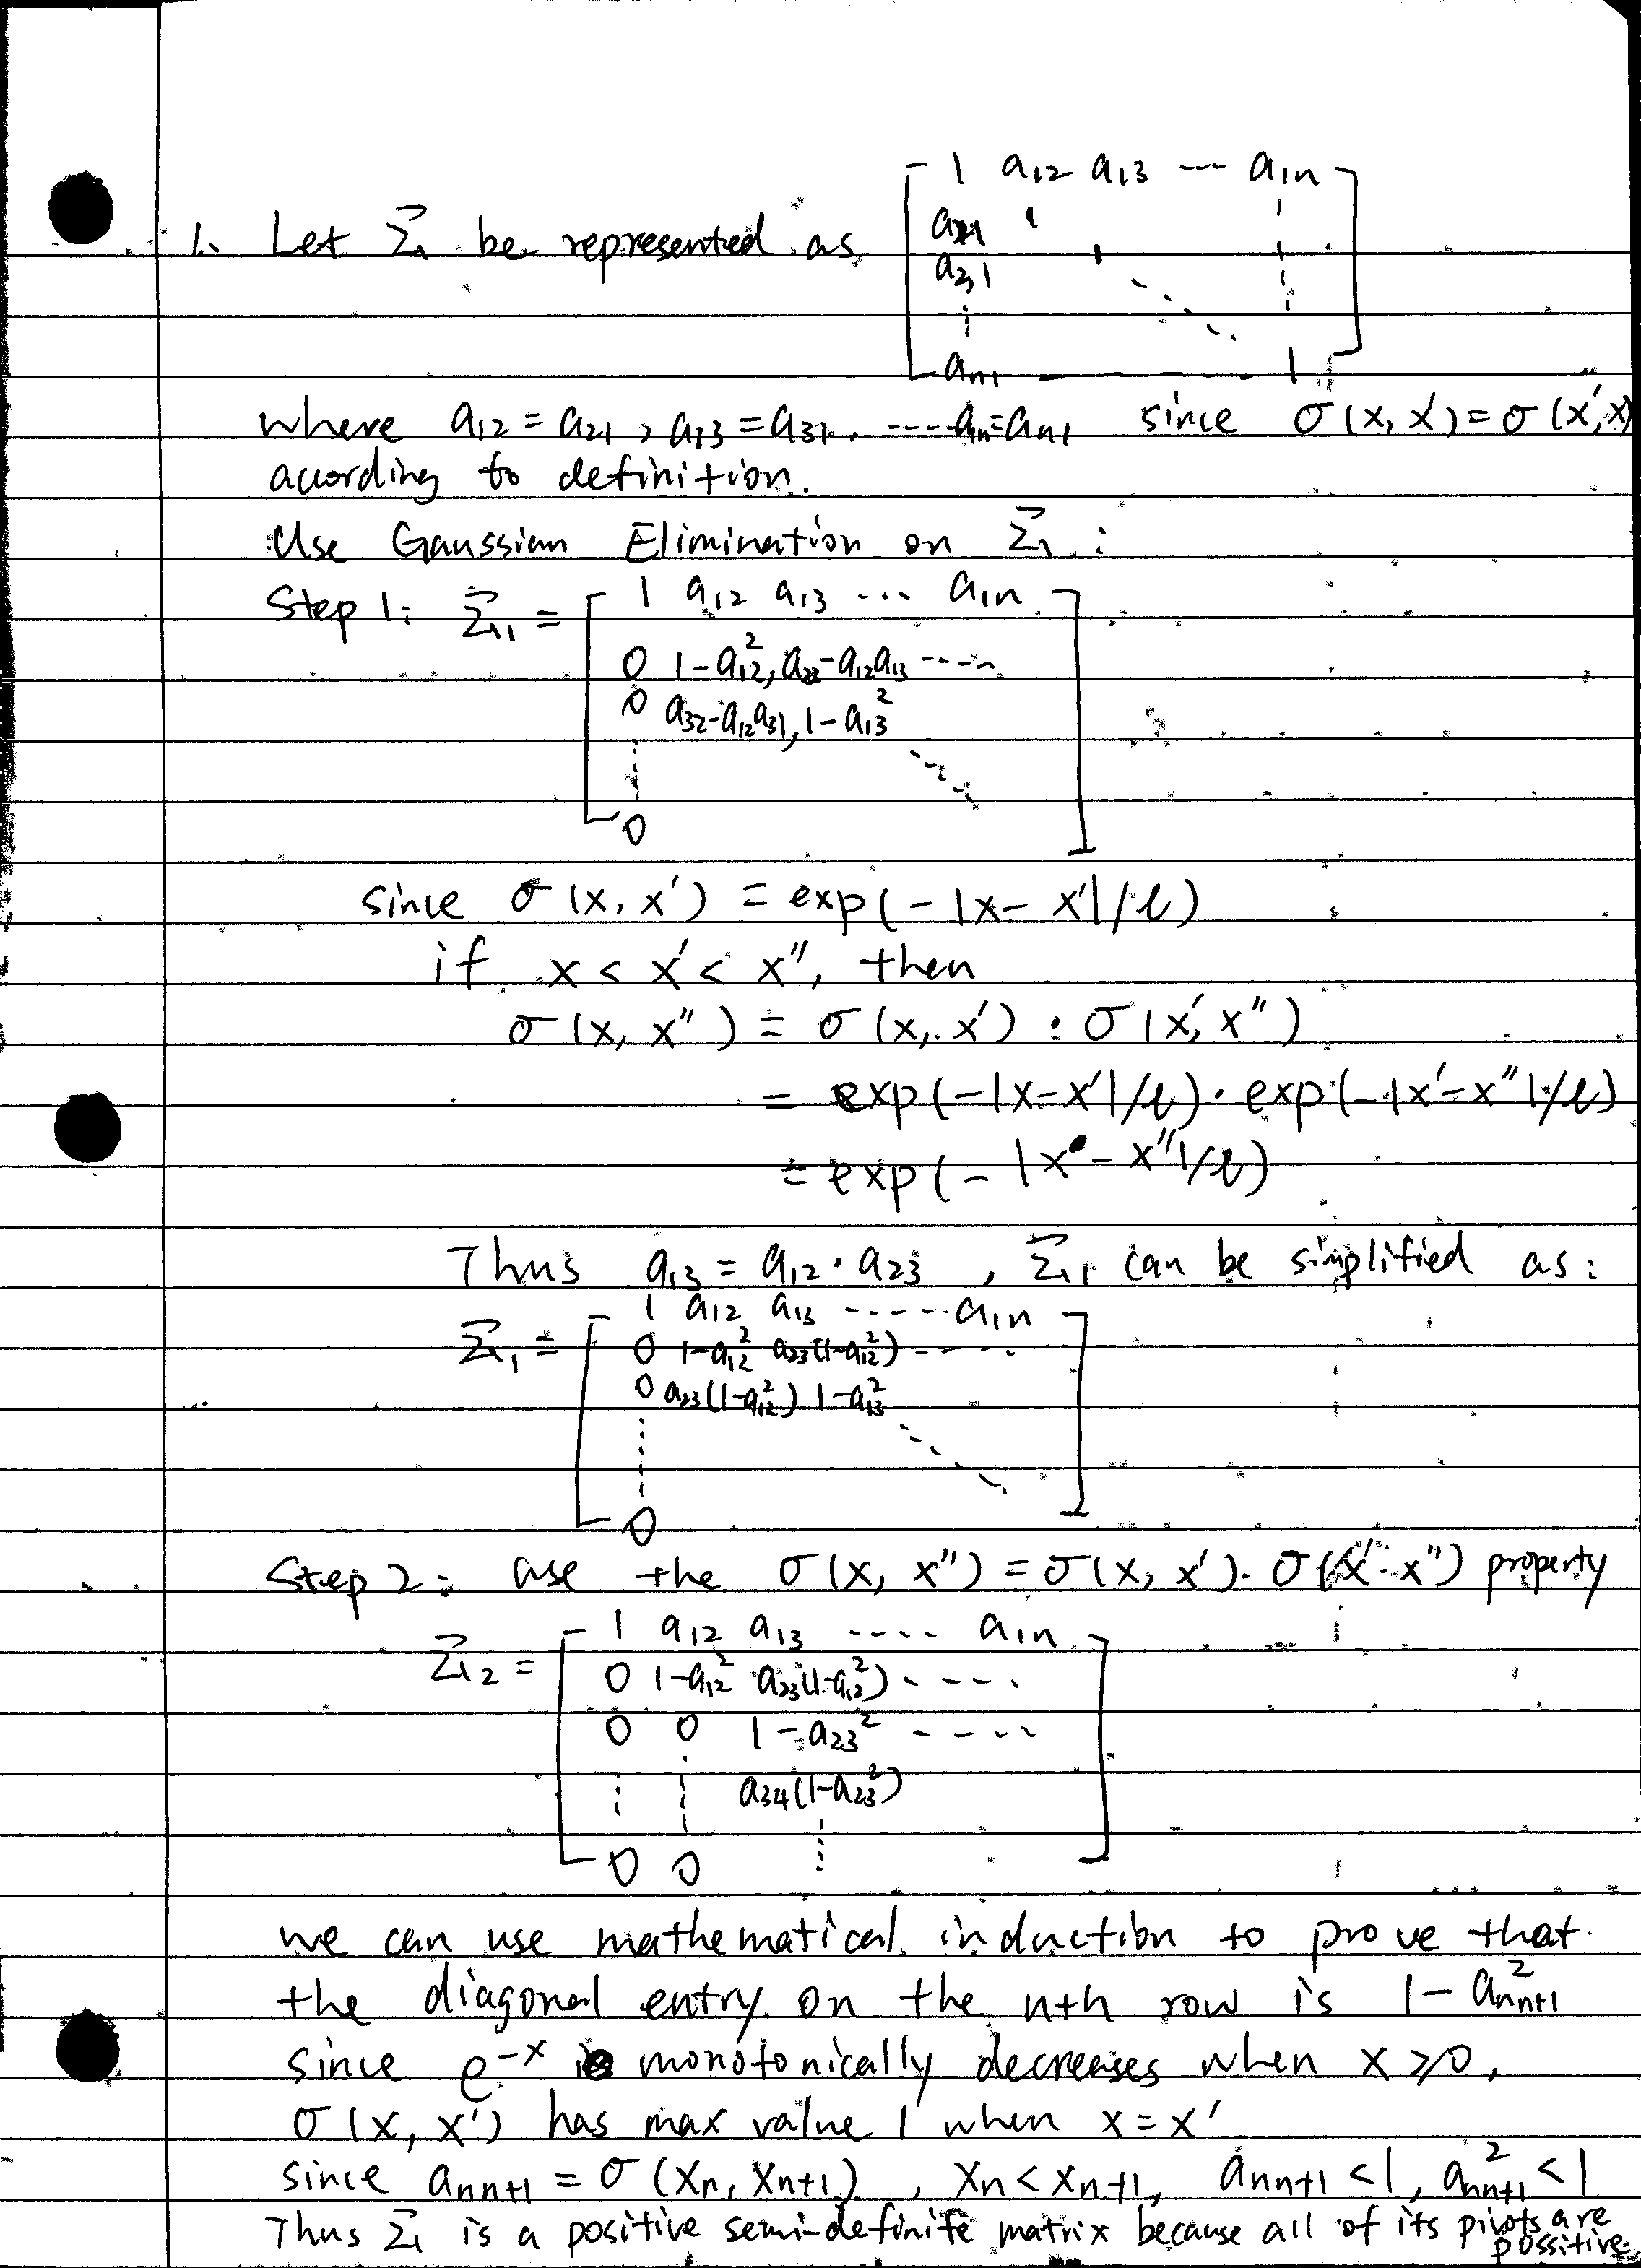 1. Let Σ₁ be represented as
[ 1 a₁₂ a₁₃ --- a₁ₙ
a₂₁ 1
a₃₁ 1
⋮
aₙ₁ - - - - - 1 ]
where a₁₂ = a₂₁, a₁₃ = a₃₁, ---- a₁ₙ = aₙ₁ since σ(x, x') = σ(x', x)
according to definition.
Use Gaussian Elimination on Σ₁ :
Step 1: Σ₁₁ = [ 1 a₁₂ a₁₃ ... a₁ₙ
0 1-a₁₂², a₂₃-a₁₂a₁₃ -----
0 a₃₂-a₁₂a₃₁, 1-a₁₃²
⋮
0 ]
since σ(x, x') = exp(-|x-x'|/ℓ)
if x < x' < x'', then
σ(x, x'') = σ(x, x') · σ(x', x'')
= exp(-|x-x'|/ℓ) · exp(-|x'-x''|/ℓ)
= exp(-|x-x''|/ℓ)
Thus a₁₃ = a₁₂ · a₂₃ , Σ₁₁ can be simplified as:
Σ₁₁ = [ 1 a₁₂ a₁₃ ------ a₁ₙ
0 1-a₁₂² a₂₃(1-a₁₂²) -----
0 a₂₃(1-a₁₂²) 1-a₁₃²
⋮
0 ]
Step 2: use the σ(x, x'') = σ(x, x') · σ(x' · x'') property
Σ₁₂ = [ 1 a₁₂ a₁₃ ---- a₁ₙ
0 1-a₁₂² a₂₃(1-a₁₂²) - - - -
0 0 1-a₂₃² - - - -
⋮ ⋮ a₃₄(1-a₂₃²)
0 0 ⋮ ]
we can use mathematical induction to prove that
the diagonal entry on the nth row is 1 - aₙₙ₊₁²
since e⁻ˣ monotonically decreases when x ≥ 0,
σ(x, x') has max value 1 when x = x'
since aₙₙ₊₁ = σ(xₙ, xₙ₊₁) , xₙ < xₙ₊₁, aₙₙ₊₁ < 1, aₙₙ₊₁² < 1
Thus Σ₁ is a positive semi-definite matrix because all of its pivots are
possitive.